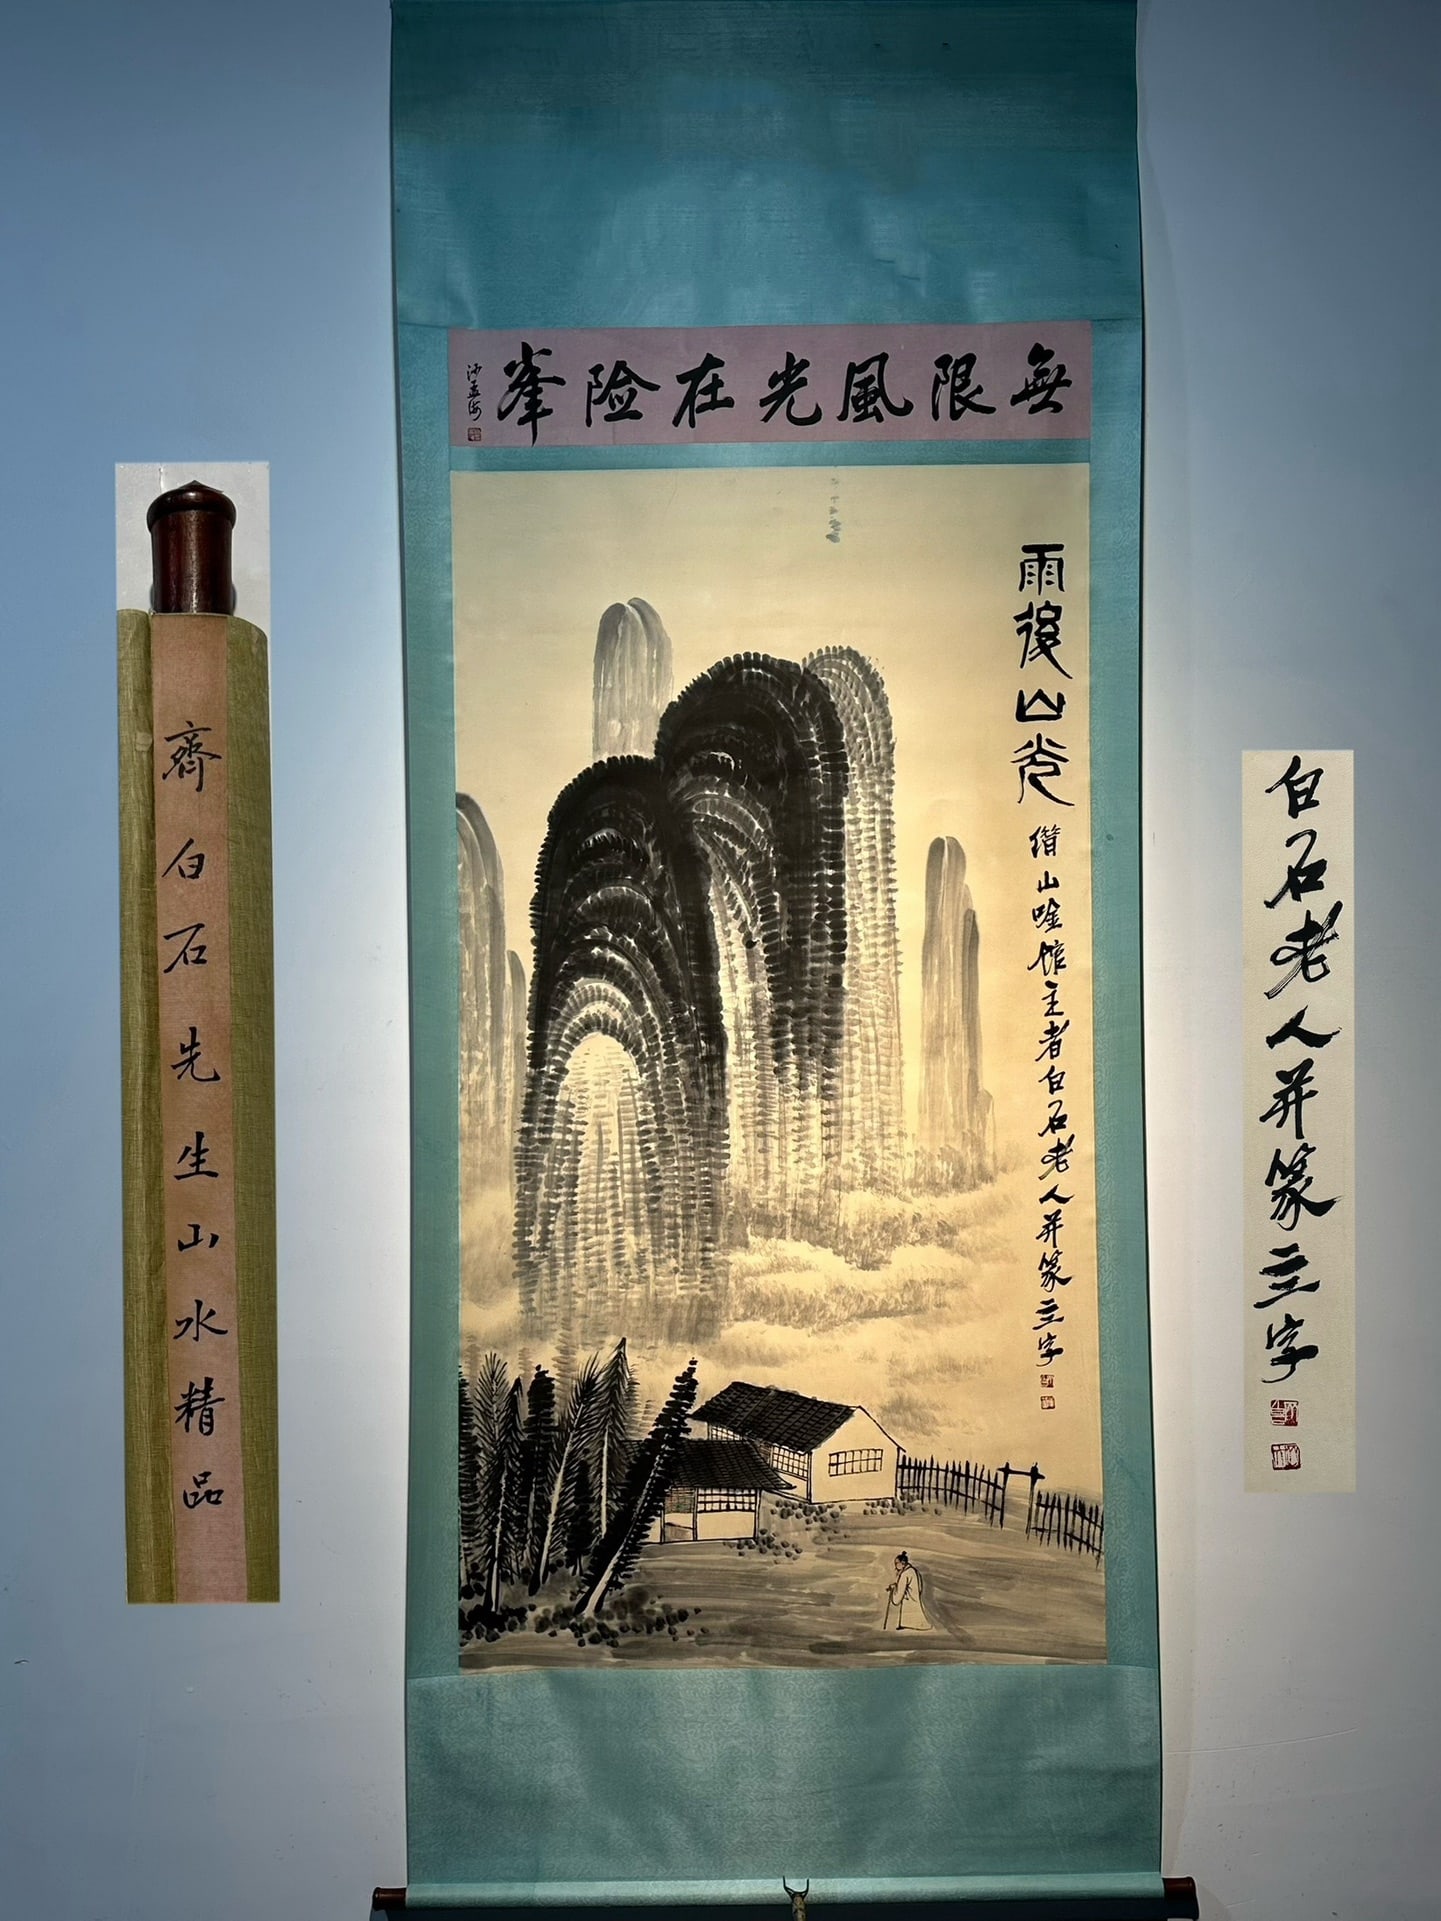 無限風光在险峯
沙孟海
雨後山光
借山唫馆主者白石老人并篆三字
齊白石先生山水精品
白石老人并篆三字